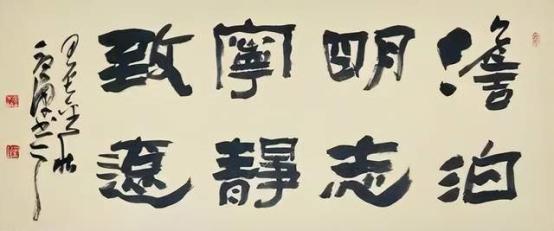 澹泊
明志
寧靜
致遠